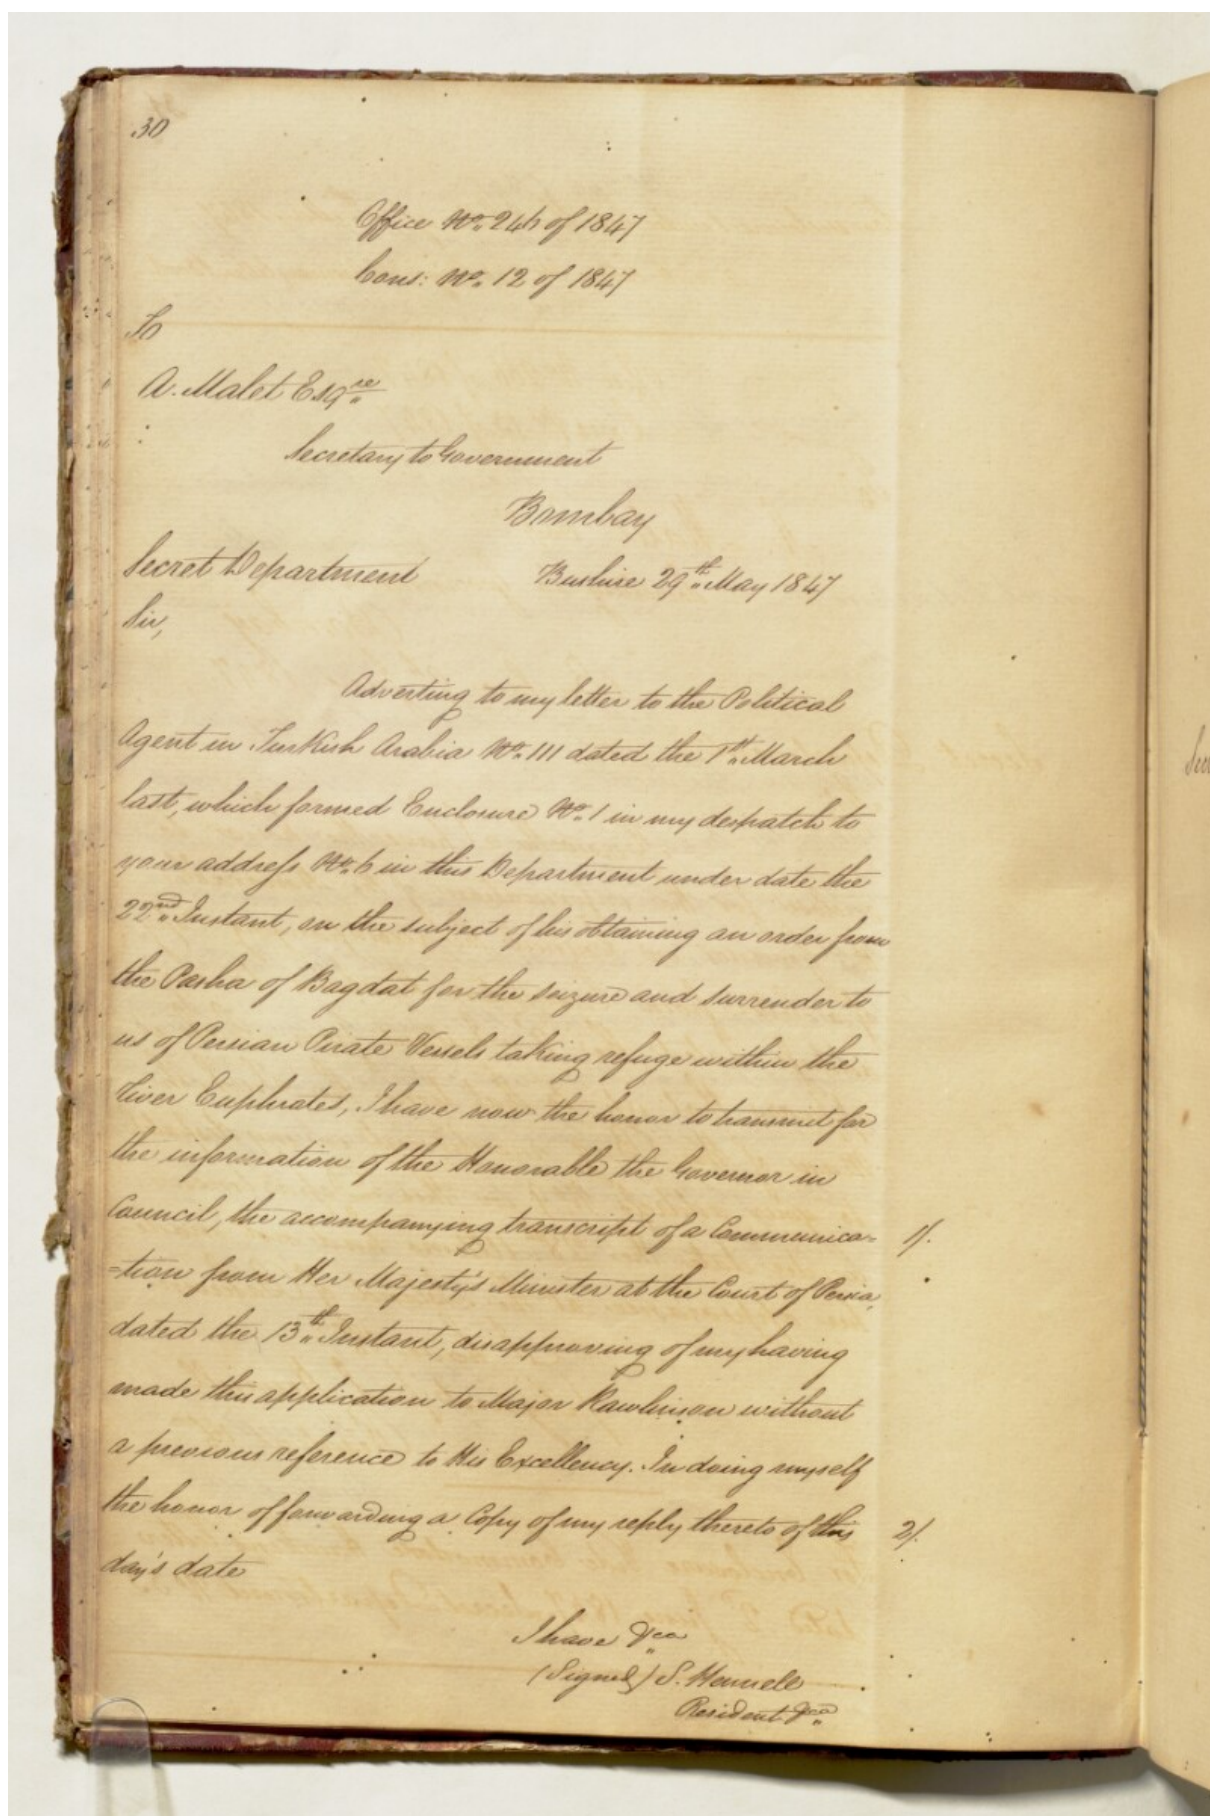 30
Office No. 246 of 1847
Cons: No. 12 of 1847
To
A. Malet Esqre
Secretary to Government
Bombay
Secret Department Bushire 29th May 1847
Sir,
Adverting to my letter to the Political
Agent in Turkish Arabia No. 111 dated the 1st March
last, which formed Enclosure No. 1 in my despatch to
your address No. 6 in this Department under date the
22nd Instant, on the subject of his obtaining an order from
the Pasha of Bagdat for the seizure and surrender to
us of Persian Pirate Vessels taking refuge within the
river Euphrates, I have now the honor to transmit for
the information of the Honorable the Governor in
Council, the accompanying transcript of a Communica= 1/.
=tion from Her Majesty's Minister at the Court of Persia,
dated the 13th Instant, disapproving of my having
made this application to Major Rawlinson without
a previous reference to His Excellency. In doing myself
the honor of forwarding a Copy of my reply thereto of this 2/.
day's date
I have &ca
(Signed) S. Hennell
Resident &ca